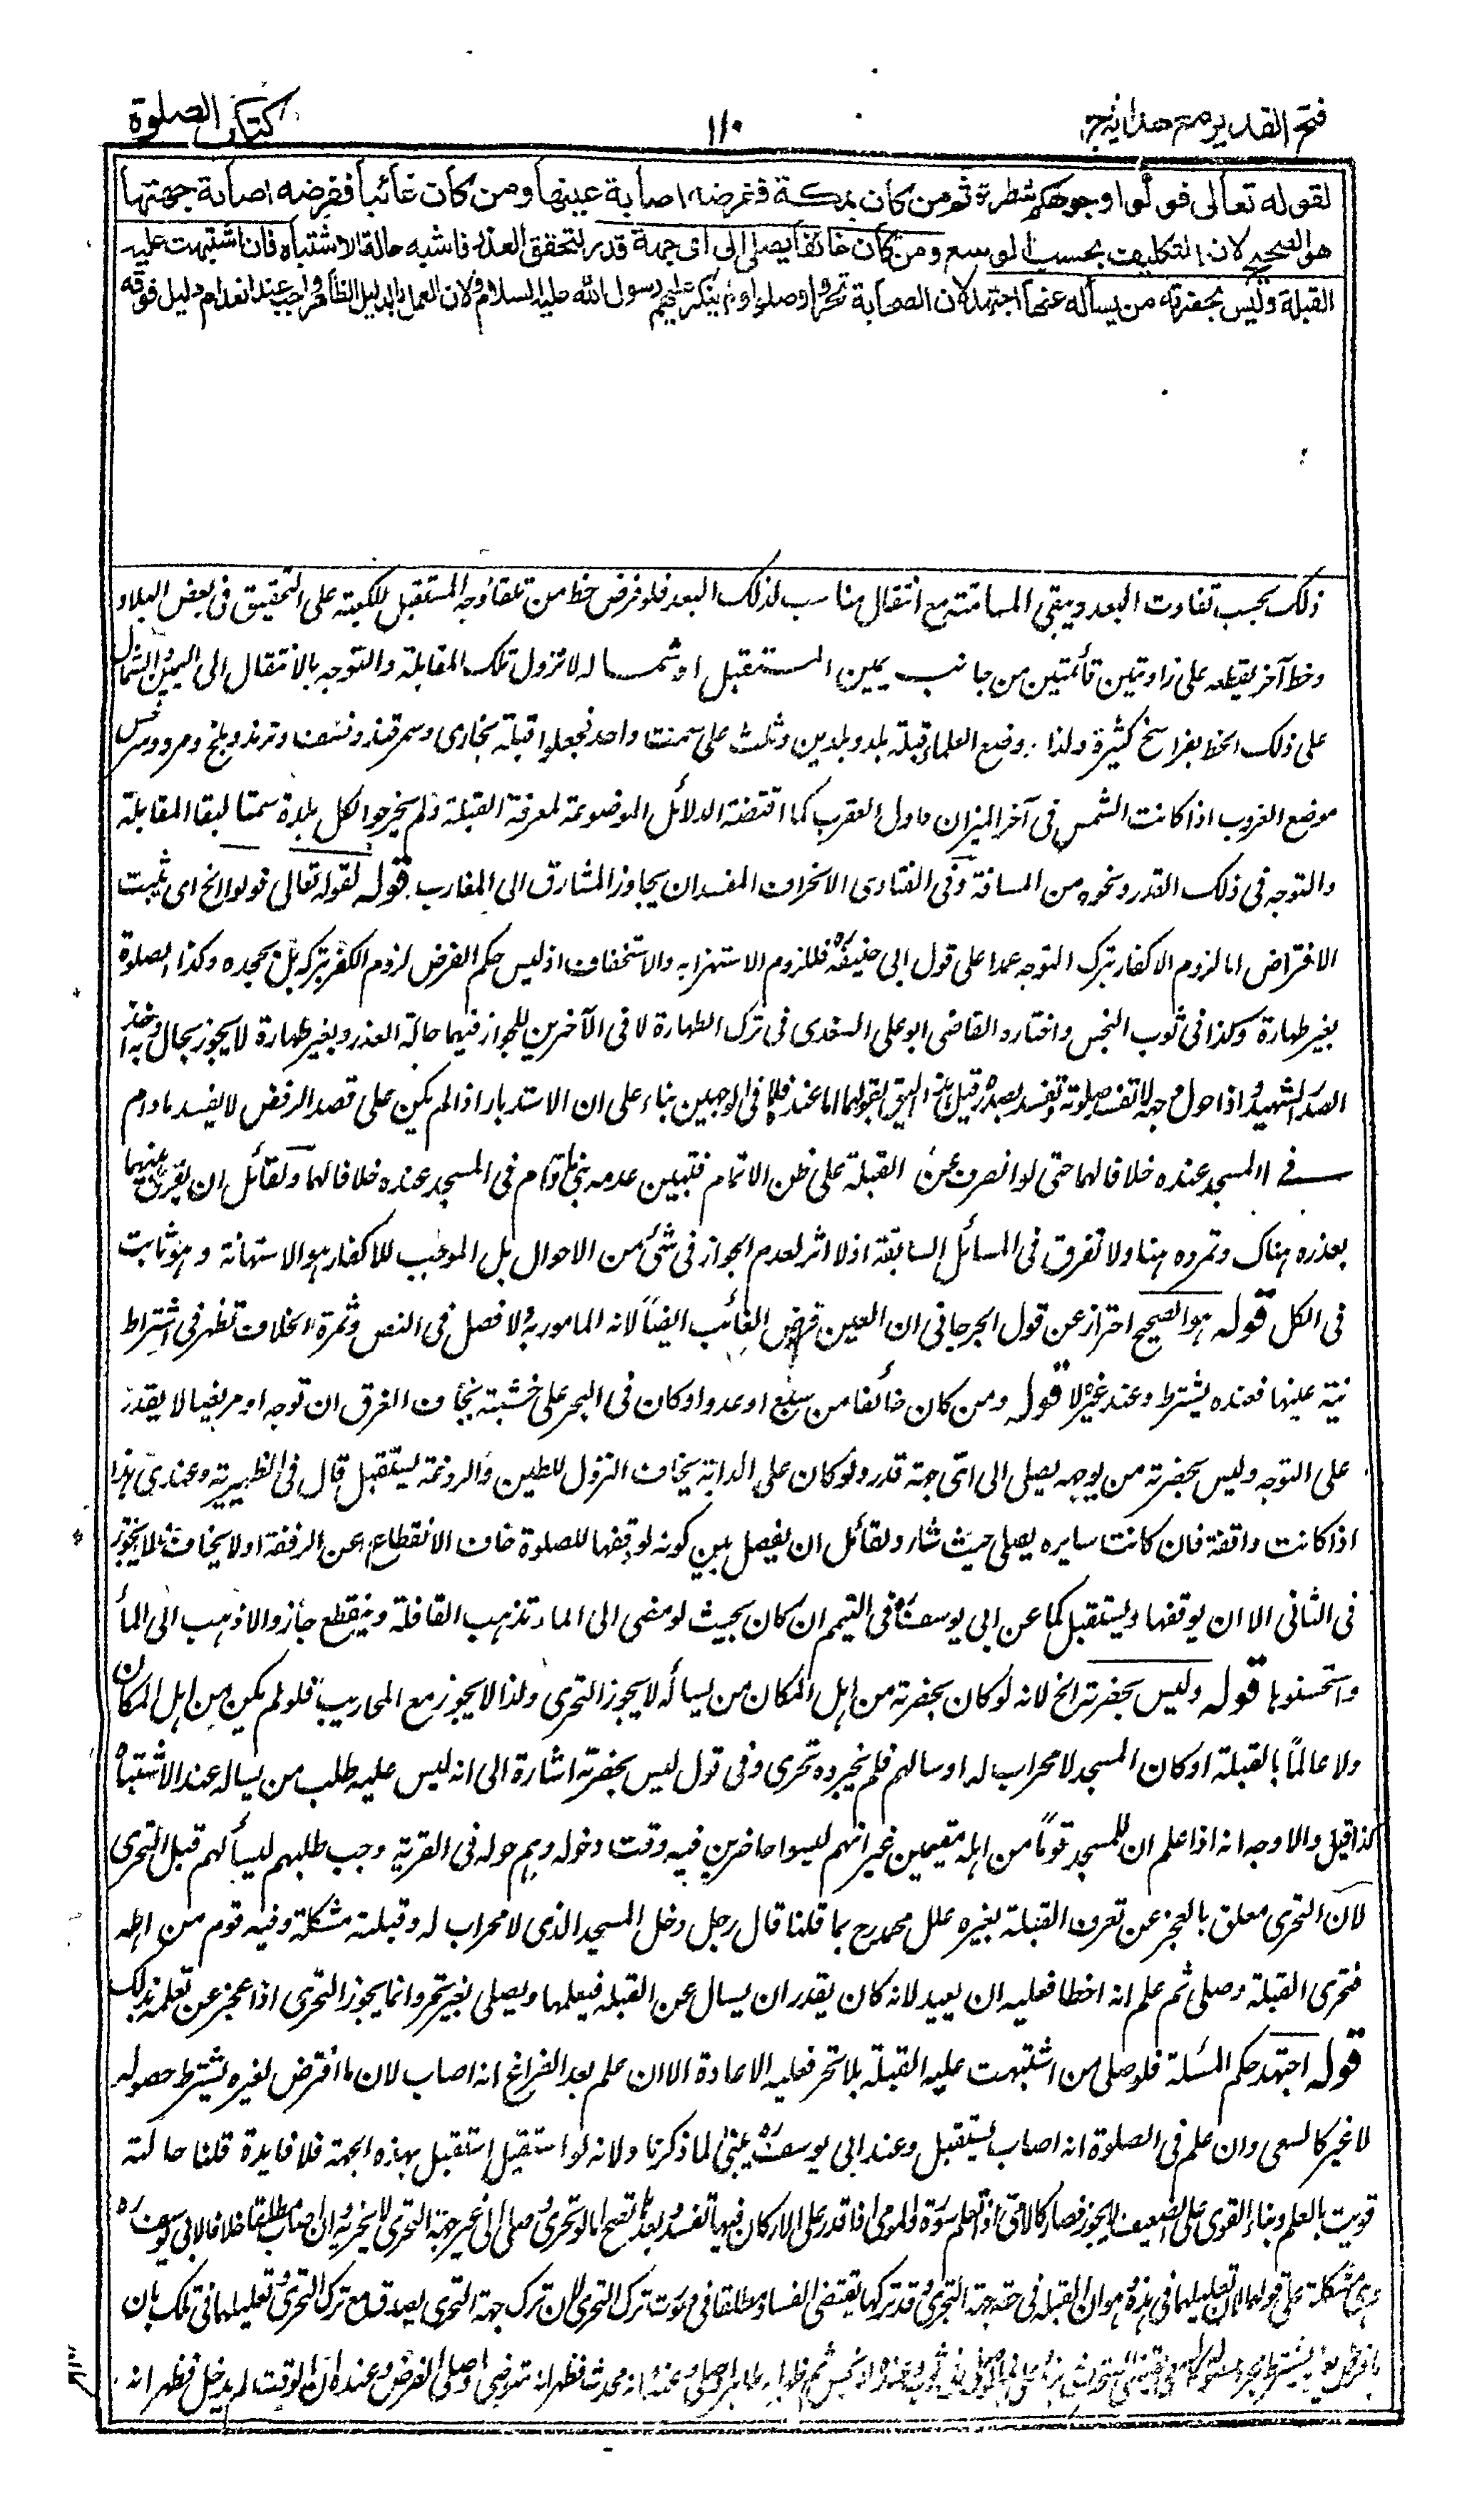 فتح القدير مع هداية ج ١
١١٠
كتاب الصلوة
لقوله تعالى فولوا وجوهكم شطره ثم من كان بمكة ففرضه اصابة عينها ومن كان غائبا ففرضه اصابة جهتها
هو الصحيح لان التكليف بحسب الوسع ومن كان خائفا يصلى الى اى جهة قدر لتحقق العذر فاشبه حالة الاشتباه فان اشتبهت عليه
القبلة وليس بحضرته من يسأله عنها اجتهد لان الصحابة تحروا وصلوا ولم ينكر عليهم رسول الله عليه السلام ولان العمل بالدليل الظاهر واجب عند انعدام دليل فوقه
ذلك بحسب تفاوت البعد ويبقى المسامتة مع انتقال مناسب لذلك البعد فلو فرض خط من تلقاء وجه المستقبل للكعبة على التحقيق فى بعض البلاد
وخط آخر يقطعه على زاويتين قائمتين من جانب يمين المستقبل او شماله لا تزول تلك المقابلة والتوجه بالانتقال الى اليمين والشمال
على ذلك الخط بفراسخ كثيرة ولذا وضع العلماء قبلة بلد وبلدين وثلث على سمت واحد فجعلوا قبلة بخارى وسمرقند ونسف وترمذ وبلخ ومرو وسرخس
موضع الغروب اذا كانت الشمس فى آخر الميزان واول العقرب كما اقتضته الدلائل الموضوعة لمعرفة القبلة ولم يخرجوا لكل بلدة سمتا لبقاء المقابلة
والتوجه فى ذلك القدر ونحوه من المسافة وفى الفتاوى الانحراف المفسد ان يجاوز المشارق الى المغارب قوله لقوله تعالى فولوا الخ اى ثبت
الافتراض اما لزوم الاكفار بترك التوجه عمدا على قول ابى حنيفة رح فللزوم الاستهزاء به والاستخفاف اذ ليس حكم الفرض لزوم الكفر بتركه بل بجحده وكذا الصلوة
بغير طهارة وكذا فى ثوب النجس واختاره القاضى ابو على السغدى فى ترك الطهارة لا فى الآخرين للجواز فيهما حالة العذر وبغير طهارة لا يجوز بحال وبه اخذ
الصدر الشهيد واذا حول وجهه لا تفسد صلوته وتفسد بصدره قيل هذا اليق بقولهما اما عنده فلا فى الوجهين بناء على ان الاستدبار اذا لم يكن على قصد الرفض لا يفسد ما دام
فى المسجد عنده خلافا لهما حتى لو انصرف عن القبلة على ظن الاتمام فتبين عدمه بنى ما دام فى المسجد عنده خلافا لهما ولقائل ان يفرق بينهما
بعذره هناك وتمرده هنا ولا تفرق فى المسائل السابقة اذ لا اثر لعدم الجواز فى شئ من الاحوال بل الموجب للاكفار هو الاستهانة وهو ثابت
فى الكل قوله هو الصحيح احتراز عن قول الجرجانى ان العين فرض الغائب ايضا لانه المامور به ولا فصل فى النص وثمرة الخلاف تظهر فى اشتراط
نية عينها فعنده يشترط وعند غيره لا قوله ومن كان خائفا من سبع او عدو او كان فى البحر على خشبة يخاف الغرق ان توجه او مريضا لا يقدر
على التوجه وليس بحضرته من يوجهه يصلى الى اى جهة قدر ولو كان على الدابة يخاف النزول للطين والردغة يستقبل قال فى الظهيرية وعندى هذا
اذا كانت واقفة فان كانت سايره يصلى حيث شاء ولقائل ان يفصل بين كونه لو وقفها للصلوة خاف الانقطاع عن الرفقة اولا يخاف فلا يجوز
فى الثانى الا ان يوقفها ويستقبل كما عن ابى يوسف رح فى التيمم ان كان بحيث لو مضى الى الماء تذهب القافلة وينقطع جاز والا ذهب الى الماء
واستحسنوها قوله وليس بحضرته الخ لانه لو كان بحضرته من اهل المكان من يسأله لا يجوز التحرى ولذا لا يجوز مع المحاريب فلو لم يكن من اهل المكان
ولا عالما بالقبلة او كان المسجد لا محراب له او سالهم فلم يخبروه تحرى وفى قول ليس بحضرته اشارة الى انه ليس عليه طلب من يساله عند الاشتباه
كذا قيل والاوجه انه اذا علم ان للمسجد قوما من اهله مقيمين غير انهم ليسوا حاضرين فيه وقت دخوله وهم حوله فى القرية وجب طلبهم ليسألهم قبل التحرى
لان التحرى معلق بالعجز عن تعرف القبلة بغيره علل محمد رح بما قلنا قال رجل دخل المسجد الذى لا محراب له وقبلته مشكلة وفيه قوم من اهله
فتحرى القبلة وصلى ثم علم انه اخطا فعليه ان يعيد لانه كان يقدر ان يسال عن القبلة فيعلمها ويصلى بغير تحر وانما يجوز التحرى اذا عجز عن تعلمه ذلك
قوله اجتهد حكم المسئلة فلو صلى من اشتبهت عليه القبلة بلا تحر فعليه الاعادة الا ان علم بعد الفراغ انه اصاب لان ما افترض لغيره يشترط حصوله
لا غير كالسعى وان علم فى الصلوة انه اصاب يستقبل وعند ابى يوسف رح يبنى لما ذكرنا ولانه لو استقبل استقبل بهذه الجهة فلا فايدة قلنا حالته
قويت بالعلم وبناء القوى على الضعيف لا يجوز فصار كالامى اذا تعلم سورة والمومى اذا قدر على الاركان فيها تفسد وبعدها تصح اما لو تحرى وصلى الى غير جهة التحرى لا يجزيه ان اصاب مطلقا خلافا لابى يوسف رح
وهى مشكلة على قولهما لان تعليلهما فى هذه وهو ان القبلة فى حقه جهة التحرى وقد تركها يقتضى الفساد مطلقا فى صورت ترك التحرى لان ترك جهة التحرى يصدق مع ترك التحرى وتعليلهما فى تلك بان
ما فرض لغيره يشترط مجرد حصوله كالسعى يقتضى الصحة فى هذه وعلى هذا لو صلى فى ثوب وعنده انه نجس ثم ظهر انه طاهر او صلى وعنده انه محدث فظهر انه متوضى او صلى الفرض وعنده ان الوقت لم يدخل فظهر انه